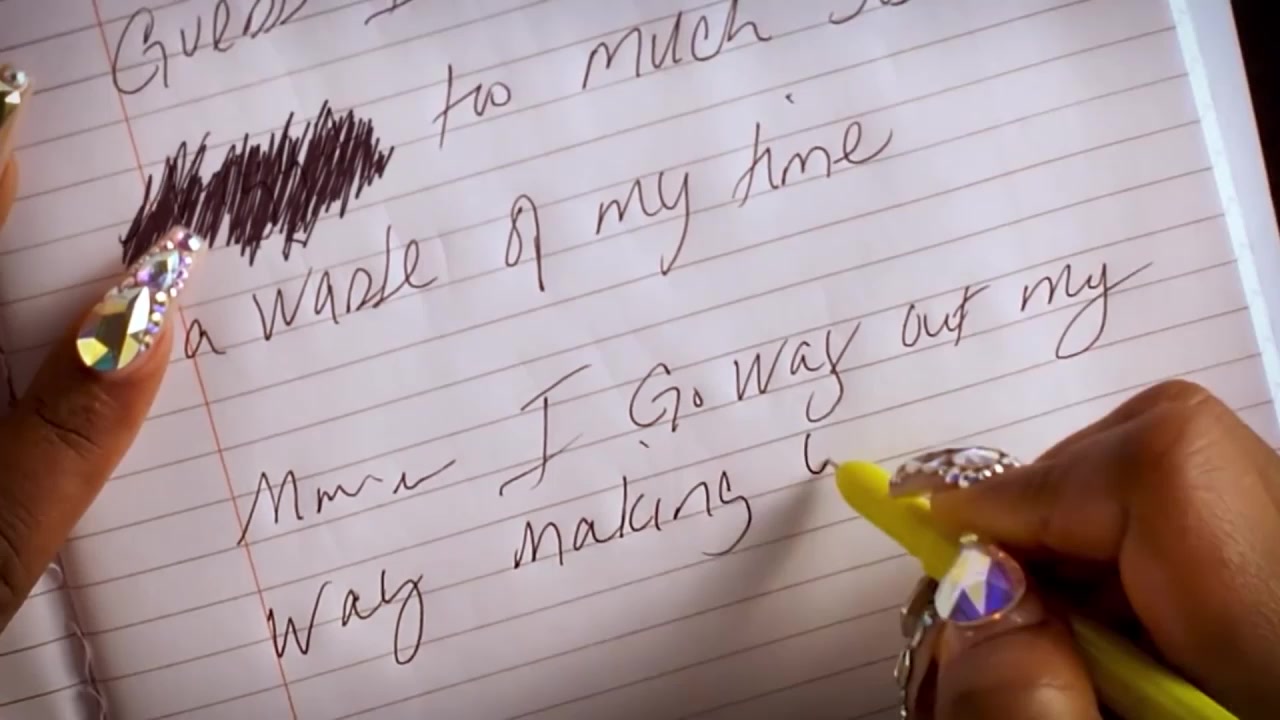 Guess I
too much
a waste of my time
Mmm I Go way out my
way making